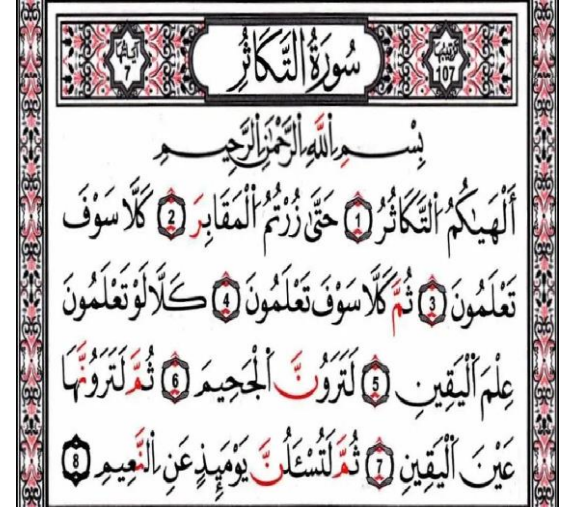 ترتيبها 107 سُورَةُ التَّكَاثُرِ آيَاتُهَا 7
بِسْمِ اِ۬للَّهِ اِ۬لرَّحْمَٰنِ اِ۬لرَّحِيمِ
أَلْهَيٰكُمُ اُ۬لتَّكَاثُرُ 1 حَتَّىٰ زُرْتُمُ اُ۬لْمَقَابِرَ 2 كَلَّا سَوْفَ
تَعْلَمُونَ 3 ثُمَّ كَلَّا سَوْفَ تَعْلَمُونَ 4 كَلَّا لَوْ تَعْلَمُونَ
عِلْمَ اَ۬لْيَقِينِ 5 لَتَرَوُنَّ اَ۬لْجَحِيمَ 6 ثُمَّ لَتَرَوُنَّهَا
عَيْنَ اَ۬لْيَقِينِ 7 ثُمَّ لَتُسْـَٔلُنَّ يَوْمَئِذٍ عَنِ اِ۬لنَّعِيمِ 8